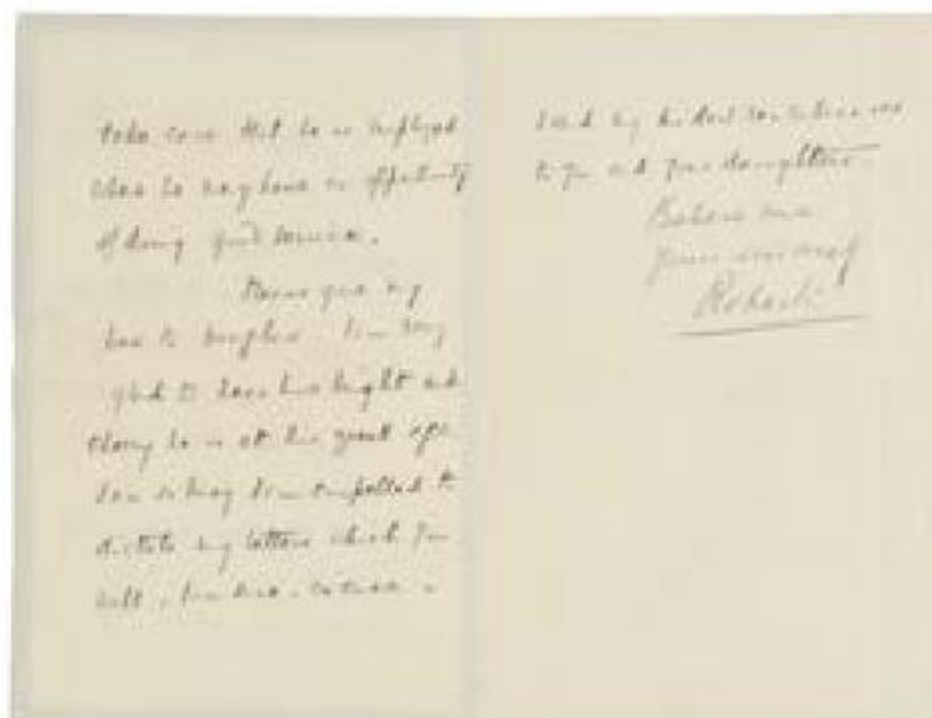 take care that he is employed
when he may have an opportunity
of doing good service.
Please give my
love to
glad to hear how bright and
he is at his great age.
I am so busy I am compelled to
dictate my letters which you
will, I am sure, excuse.
With my kindest
to you and your daughters.
Believe me
Yours sincerely
Roberts